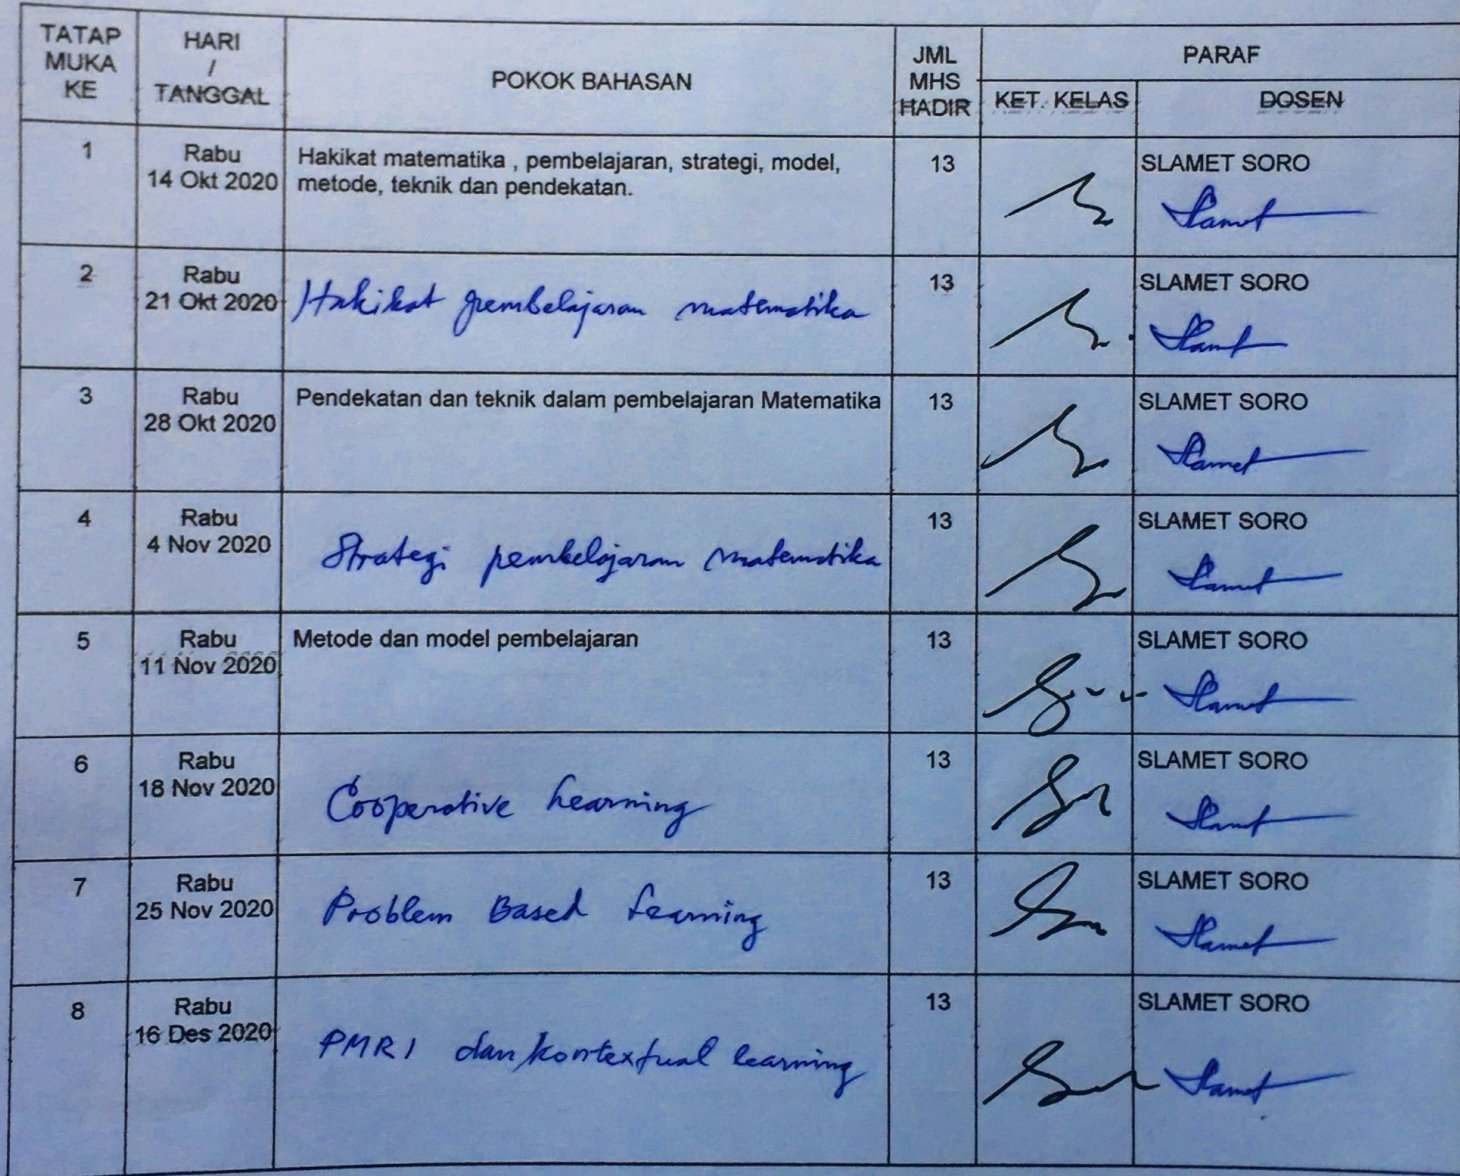 TATAP MUKA KE
HARI / TANGGAL
POKOK BAHASAN
JML MHS HADIR
PARAF
KET. KELAS
DOSEN
1
Rabu
14 Okt 2020
Hakikat matematika , pembelajaran, strategi, model,
metode, teknik dan pendekatan.
13
SLAMET SORO
Slamet
2
Rabu
21 Okt 2020
Hakikat pembelajaran matematika
13
SLAMET SORO
Slamet
3
Rabu
28 Okt 2020
Pendekatan dan teknik dalam pembelajaran Matematika
13
SLAMET SORO
Slamet
4
Rabu
4 Nov 2020
Strategi pembelajaran matematika
13
SLAMET SORO
Slamet
5
Rabu
11 Nov 2020
Metode dan model pembelajaran
13
SLAMET SORO
Slamet
6
Rabu
18 Nov 2020
Cooperative Learning
13
SLAMET SORO
Slamet
7
Rabu
25 Nov 2020
Problem Based Learning
13
SLAMET SORO
Slamet
8
Rabu
16 Des 2020
PMRI dan kontextual learning
13
SLAMET SORO
Slamet